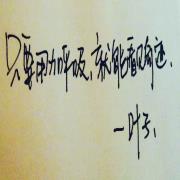 只要用力呼吸、就能看见奇迹.
一叶子.